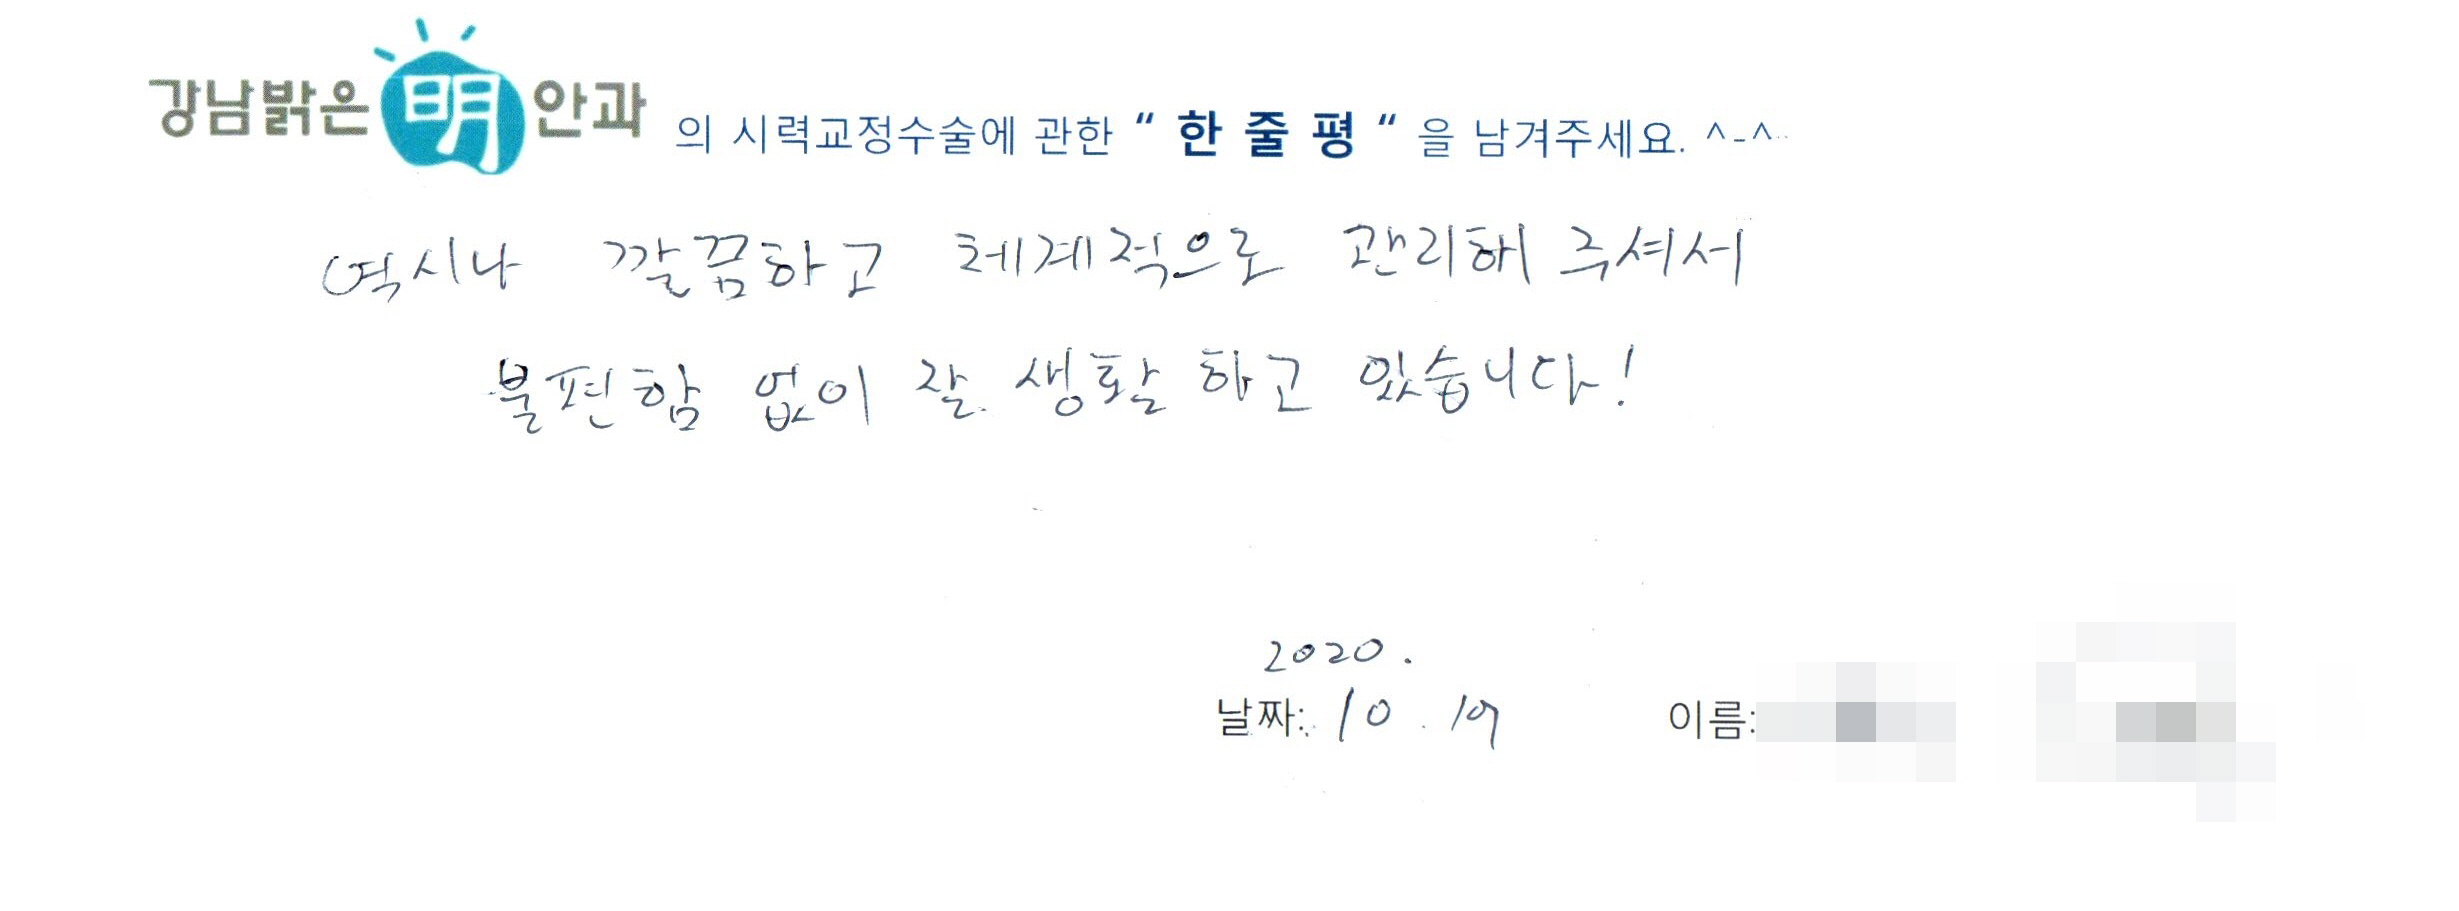 강남밝은明안과 의 시력교정수술에 관한 “ 한 줄 평 “ 을 남겨주세요. ^-^
역시나 깔끔하고 체계적으로 관리해 주셔서
불편함 없이 잘 생활 하고 있습니다!
2020.
날짜: 10 . 19 이름: